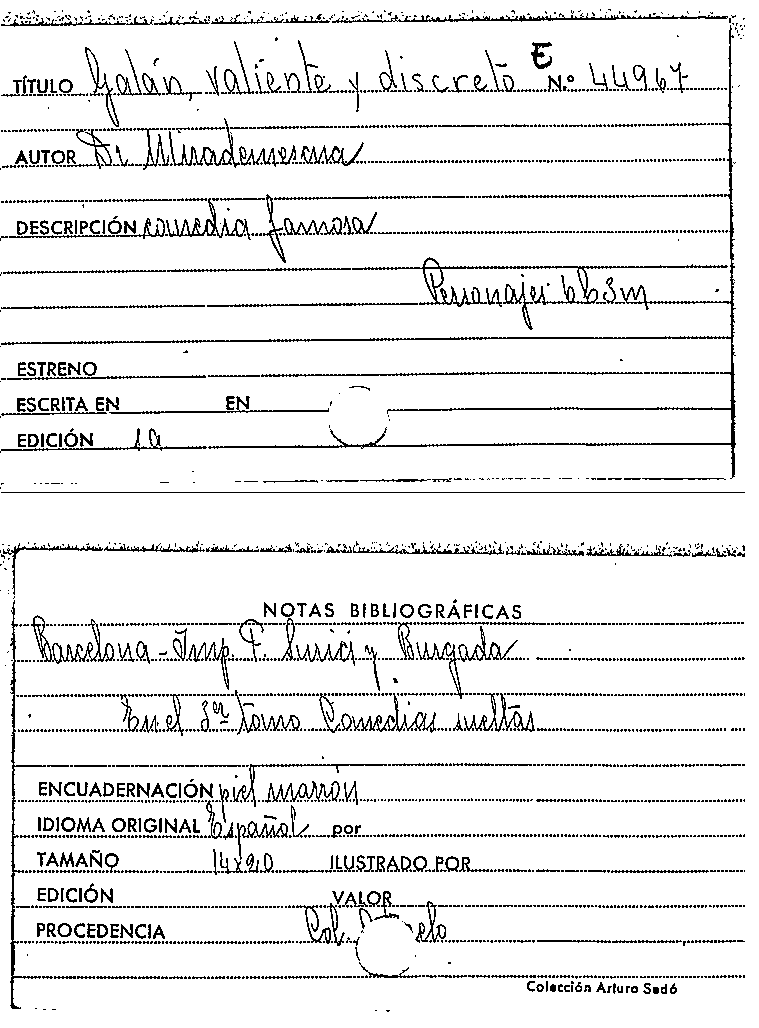 TÍTULO Galán, valiente y discreto E N.º 44967
AUTOR Dr Mirademescua
DESCRIPCIÓN comedia famosa
Personajes 6h3m
ESTRENO
ESCRITA EN EN
EDICIÓN 1a
NOTAS BIBLIOGRÁFICAS
Barcelona - Imp. F. Suriá y Burgada
En el 3er tomo Comedias sueltas
ENCUADERNACIÓN piel marrón
IDIOMA ORIGINAL Español por
TAMAÑO 14x20 ILUSTRADO POR
EDICIÓN VALOR
PROCEDENCIA Col.
Colección Arturo Sedó